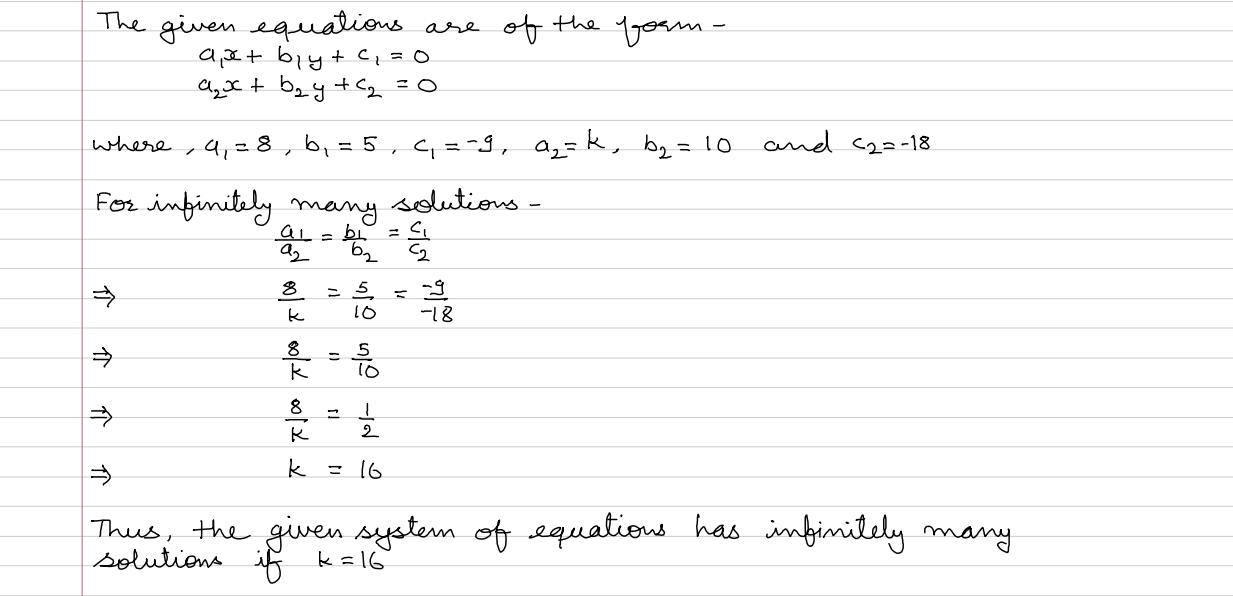 The given equations are of the form -
a₁x + b₁y + c₁ = 0
a₂x + b₂y + c₂ = 0
where, a₁ = 8, b₁ = 5, c₁ = -9, a₂ = k, b₂ = 10 and c₂ = -18
For infinitely many solutions -
a₁/a₂ = b₁/b₂ = c₁/c₂
⇒ 8/k = 5/10 = -9/-18
⇒ 8/k = 5/10
⇒ 8/k = 1/2
⇒ k = 16
Thus, the given system of equations has infinitely many
solutions if k = 16